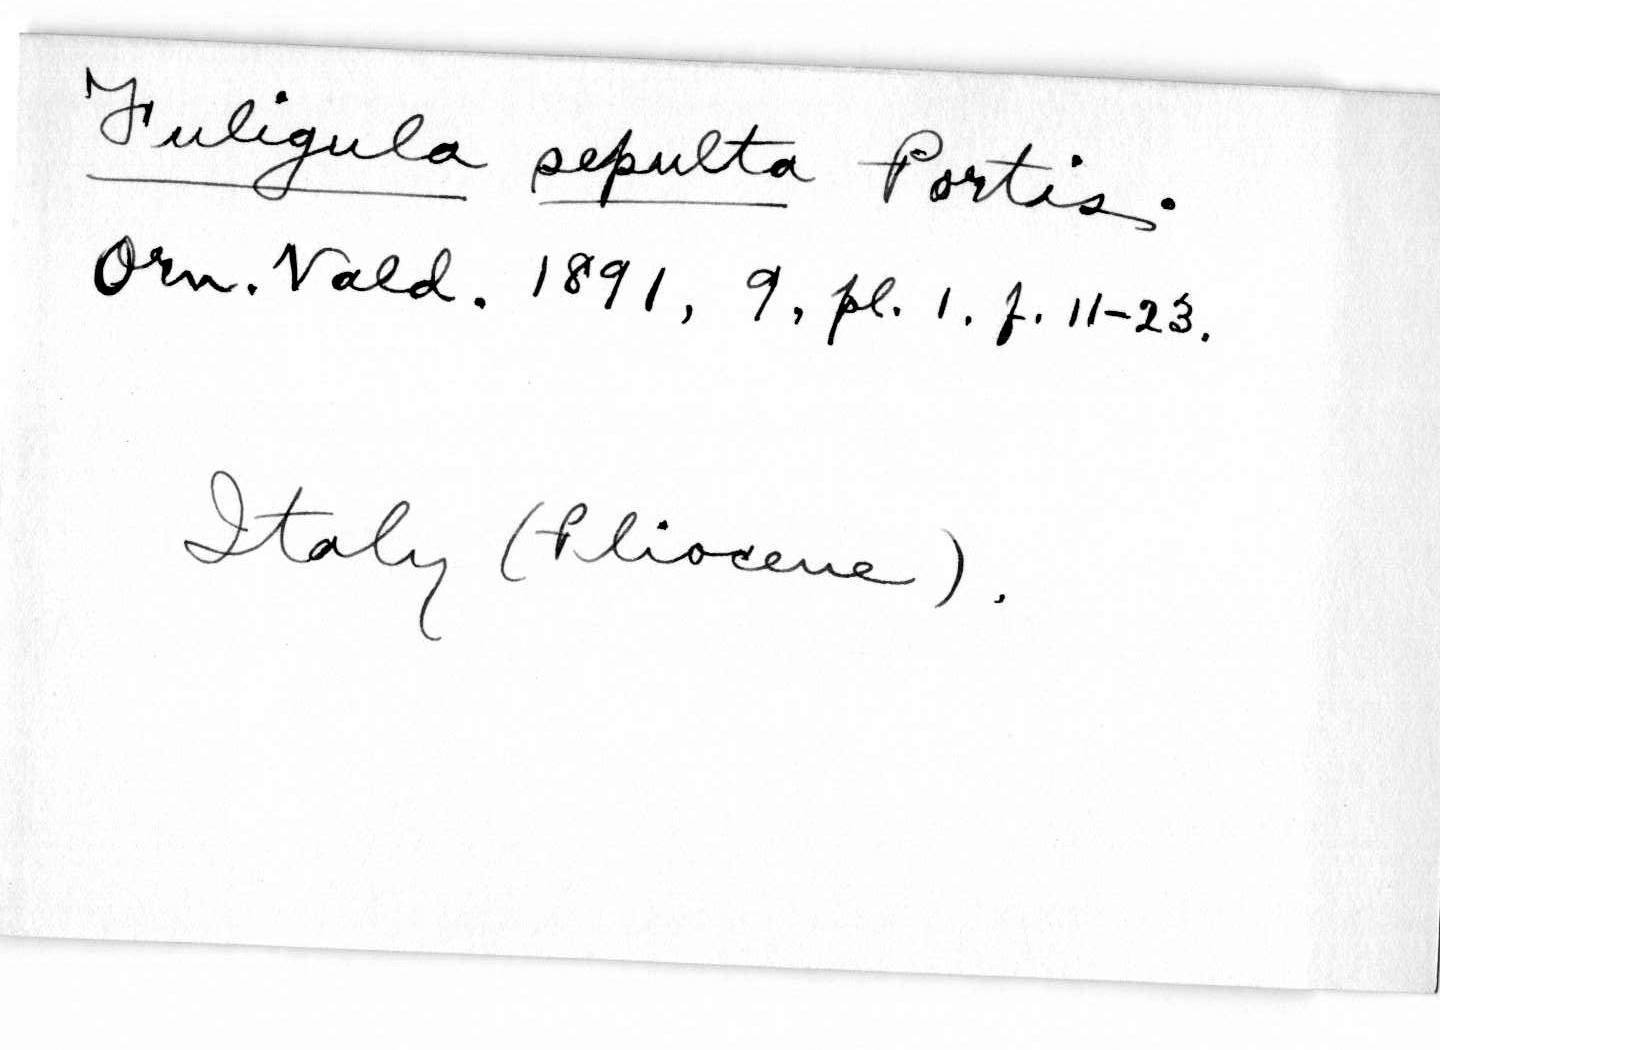 Fuligula sepulta Portis.
Orn. Vald. 1891, 9, pl. 1. f. 11-23.
Italy (Pliocene).